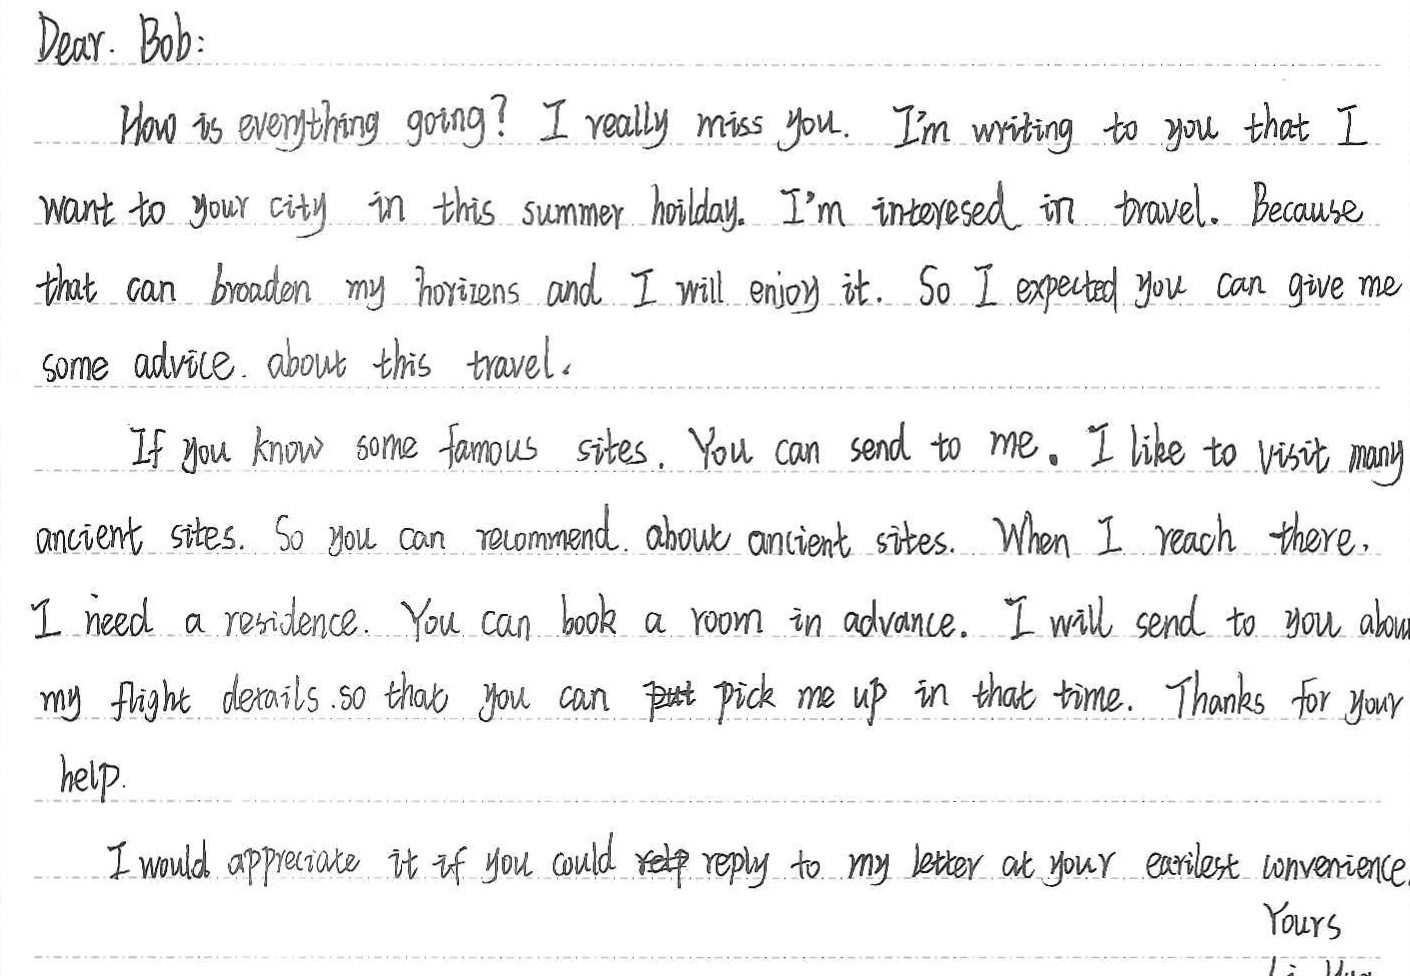 Dear. Bob:
How is everything going? I really miss you. I'm writing to you that I
want to your city in this summer hoilday. I'm interesed in travel. Because
that can broaden my horizens and I will enjoy it. So I expected you can give me
some advice. about this travel.
If you know some famous sites. You can send to me. I like to visit many
ancient sites. So you can recommend. about ancient sites. When I reach there,
I need a residence. You can book a room in advance. I will send to you abou
my flight derails. so that you can put pick me up in that time. Thanks for your
help.
I would appreciate it if you could reply to my letter at your earilest convenience.
Yours